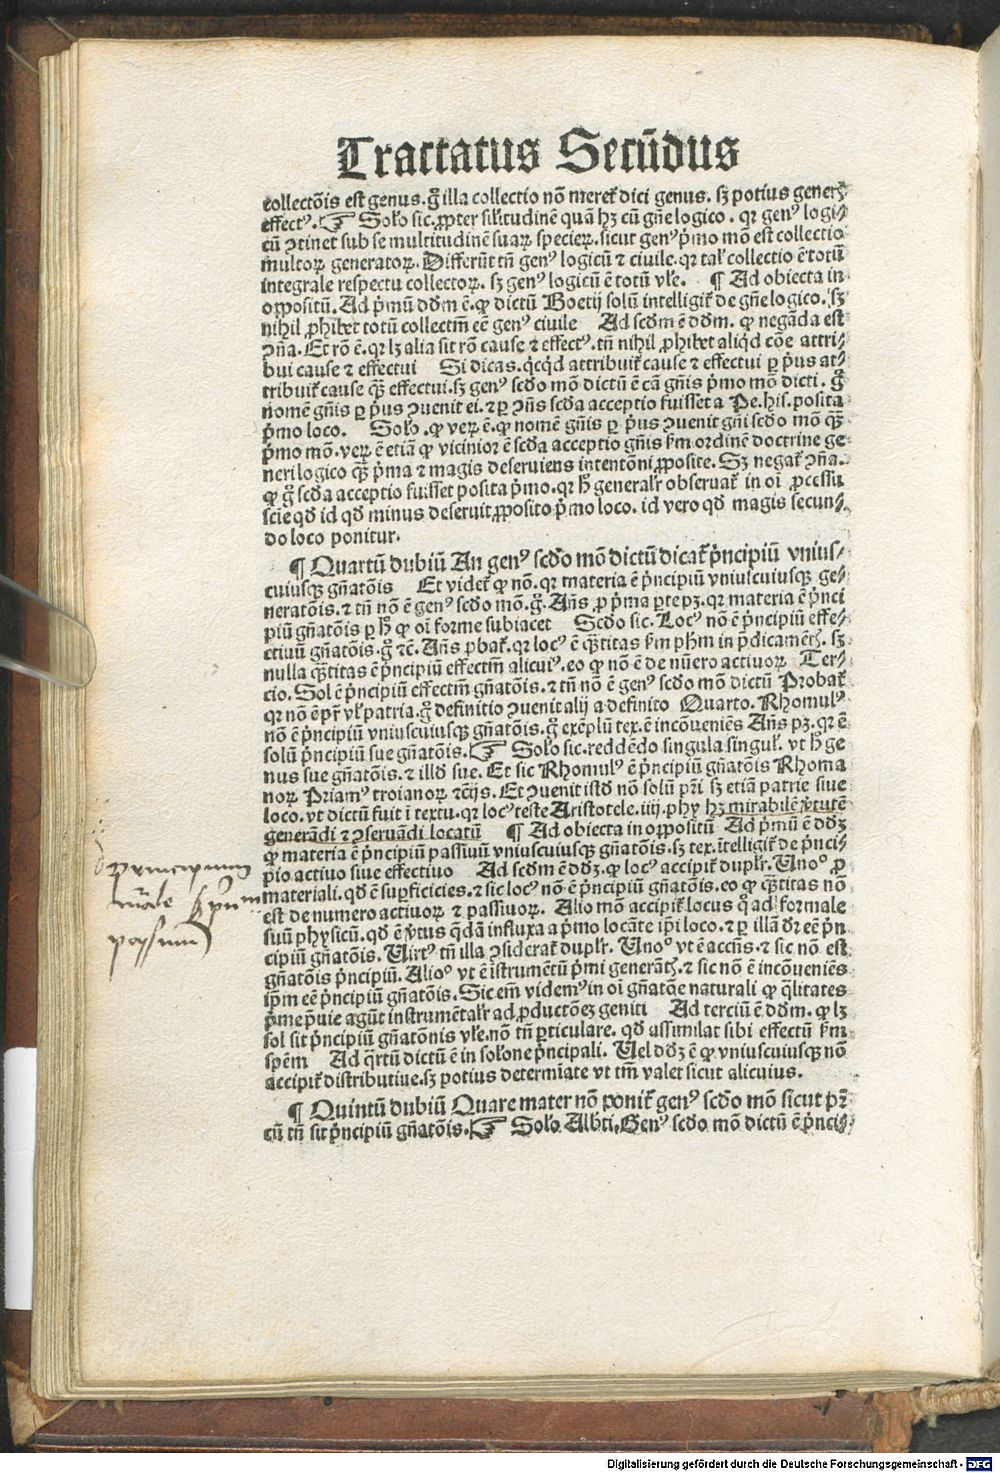 Tractatus Secūdus
collectōis est genus. gͦ illa collectio nō meret᷑ dici genus. sꝫ potius generꝭ
effectꝰ. ☞ Solo sic. ꝓpter sil'itudinē quā hꝫ cū gn̄e logico. qꝛ genꝰ logi⸗
cū ꝯtinet sub se multitudinē suaꝝ specieꝝ. sicut genꝰ p̄mo mō est collectio
multoꝝ generatoꝝ. Differūt tn̄ genꝰ logicū ⁊ ciuile. qꝛ tal' collectio ē totū
integrale respectu collectoꝝ. sꝫ genꝰ logicū ē totū vl'e. ¶ Ad obiecta in
oppositū. Ad p̄mū dd̄m ē. ꝙ dictū Boetij solū intelligit᷑ de gn̄e logico. sꝫ
nihil ꝓhibet totū collectm̄ eē genꝰ ciuile Ad scd̄m ē dd̄m. ꝙ negāda est
ꝯn̄a. Et rō ē. qꝛ lꝫ alia sit rō cause ⁊ effectꝰ. tn̄ nihil ꝓhibet aliqd cōe attri⸗
bui cause ⁊ effectui Si dicas. qcqd attribuit᷑ cause ⁊ effectui ꝑ p̄us at⸗
tribuit᷑ cause qꝫ effectui. sꝫ genꝰ scd̄o mō dictū ē cā gn̄is p̄mo mō dicti. gͦ
nomē gn̄is ꝑ p̄us ꝯuenit ei. ⁊ ꝑ ꝯn̄s scd̄a acceptio fuisset a Pe. his. posita
p̄mo loco. Solo. ꝙ veꝝ ē. ꝙ nomē gn̄is ꝑ p̄us ꝯuenit gn̄i scd̄o mō qꝫ
p̄mo mō. veꝝ ē etiā ꝙ vicinior ē scd̄a acceptio gn̄is km̄ ordinē doctrine ge
neri logico qꝫ p̄ma ⁊ magis deseruiens intentōni ꝓposite. Sꝫ negat᷑ ꝯn̄a.
ꝙ gͦ scd̄a acceptio fuisset posita p̄mo. qꝛ h̄ generalr̄ obseruat᷑ in oī ꝓcessu
scīe qd̄ id qd̄ minus deseruit ꝓposito p̄mo loco. id vero qd̄ magis secun⸗
do loco ponitur.
¶ Quartū dubiū An genꝰ scd̄o mō dictū dicat᷑ p̄ncipiū vnius⸗
cuiusqꝫ gn̄atōis Et videt᷑ ꝙ nō. qꝛ materia ē p̄ncipiū vniuscuiusqꝫ ge⸗
neratōis. ⁊ tn̄ nō ē genꝰ scd̄o mō. gͦ. Añs ꝓ p̄ma ꝑte pꝫ. qꝛ materia ē p̄nci
piū gn̄atōis ꝑ h̄ ꝙ oī forme subiacet Scd̄o sic. Locꝰ nō ē p̄ncipiū effe⸗
ctiuū gn̄atōis. gͦ ⁊c̄. Añs ꝓbat᷑. qꝛ locꝰ ē qꝫtitas km̄ phm̄ in p̄dicamētꝭ. sꝫ
nulla qꝫtitas ē p̄ncipiū effectm̄ alicuiꝰ. eo ꝙ nō ē de nūero actiuoꝝ Ter⸗
cio. Sol ē p̄ncipiū effectm̄ gn̄atōis. ⁊ tn̄ nō ē genꝰ scd̄o mō dictū Probat᷑
qꝛ nō ē pr̄ vl' patria. gͦ definitio ꝯuenit alij a definito Quarto. Rhomulꝰ
nō ē p̄ncipiū vniuscuiusqꝫ gn̄atōis. gͦ exēplū tex. ē incōueniēs Añs pꝫ. qꝛ ē
solū p̄ncipiū sue gn̄atōis. ☞ Solo sic. reddēdo singula singul'. vt h̄ ge
nus sue gn̄atōis. ⁊ illd̄ sue. Et sic Rhomulꝰ ē p̄ncipiū gn̄atōis Rhoma
noꝝ Priamꝰ troianoꝝ ⁊c̄ijs. Et ꝯuenit istd̄ nō solū pr̄i sꝫ etiā patrie siue
loco. vt dictū fuit ī textu. qꝛ locꝰ teste Aristotele. iiij. phy hꝫ mirabilē v̄tutē
generādi ⁊ ꝯseruādi locatū ¶ Ad obiecta in oppositū Ad p̄mū ē dd̄ꝫ
ꝙ materia ē p̄ncipiū passiuū vniuscuiusqꝫ gn̄atōis. sꝫ tex. ītelligit᷑ de p̄nci⸗
pio actiuo siue effectiuo Ad scd̄m ē dd̄ꝫ. ꝙ locꝰ accipit᷑ duplr̄. Unoͦ ꝓ
materiali. qd̄ ē suꝑficicies. ⁊ sic locꝰ nō ē p̄ncipiū gn̄atōis. eo ꝙ qꝫtitas nō
est de numero actiuoꝝ ⁊ passiuoꝝ. Alio mō accipit᷑ locus qͣ ad formale
suū physicū. qd̄ ē v̄tus qdā influxa a p̄mo locāte ip̄i loco. ⁊ ꝑ illā dr̄ eē p̄n
cipiū gn̄atōis. Uirtꝰ tn̄ illa ꝯsiderat᷑ duplr̄. Unoͦ vt ē accn̄s. ⁊ sic nō est
gn̄atōis p̄ncipiū. Alioͦ vt ē īstrumētū p̄mi generātꝭ. ⁊ sic nō ē incōueniēs
ip̄m eē p̄ncipiū gn̄atōis. Sic em̄ videmꝰ in oī gn̄atōe naturali ꝙ qlitates
p̄me p̄uie agūt instrumētalr̄ ad ꝓductōeꝫ geniti Ad terciū ē dd̄m. ꝙ lꝫ
sol sit p̄ncipiū gn̄atōnis vl'e. nō tn̄ ꝑticulare. qd̄ assimilat sibi effectū km̄
spēm Ad qrtū dictū ē in solone p̄ncipali. Uel dd̄ꝫ ē ꝙ vniuscuiusqꝫ nō
accipit᷑ distributiue. sꝫ potius determīate vt tm̄ valet sicut alicuius.
¶ Quintū dubiū Quare mater nō ponit᷑ genꝰ scd̄o mō sicut pr̄.
cū tn̄ sit p̄ncipiū gn̄atōis. ☞ Solo. Alb̄ti. Genꝰ scd̄o mō dictū ē p̄nci⸗
principium
passiuum
Digitalisierung gefördert durch die Deutsche Forschungsgemeinschaft - DFG